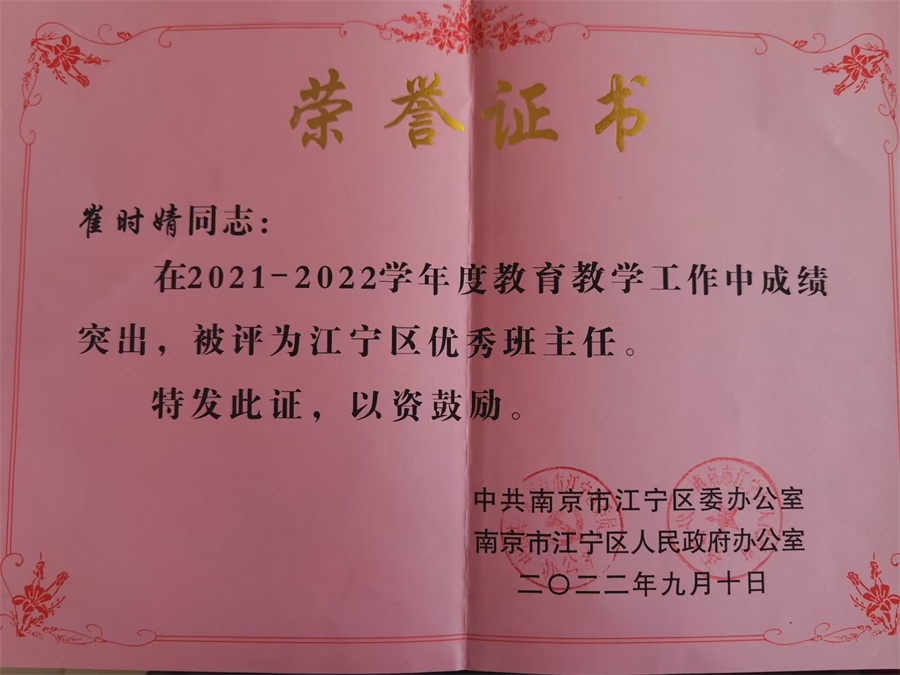 荣誉证书
崔时婧同志：
在2021-2022学年度教育教学工作中成绩
突出，被评为江宁区优秀班主任。
特发此证，以资鼓励。
中共南京市江宁区委办公室
南京市江宁区人民政府办公室
二〇二二年九月十日